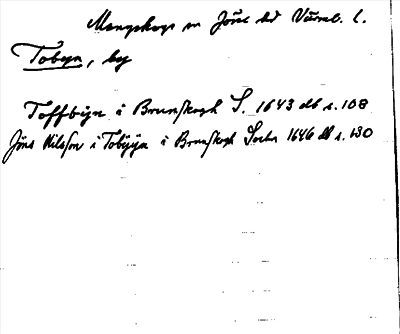 Mangskogs sn Jösse hd Värml. l.
Tobyn, by
Toffbÿn i Brunskogh S. 1643 db s. 108
Jöns Nilsson i Tobÿÿn i Brunskogh Sochn 1646 db s. 130